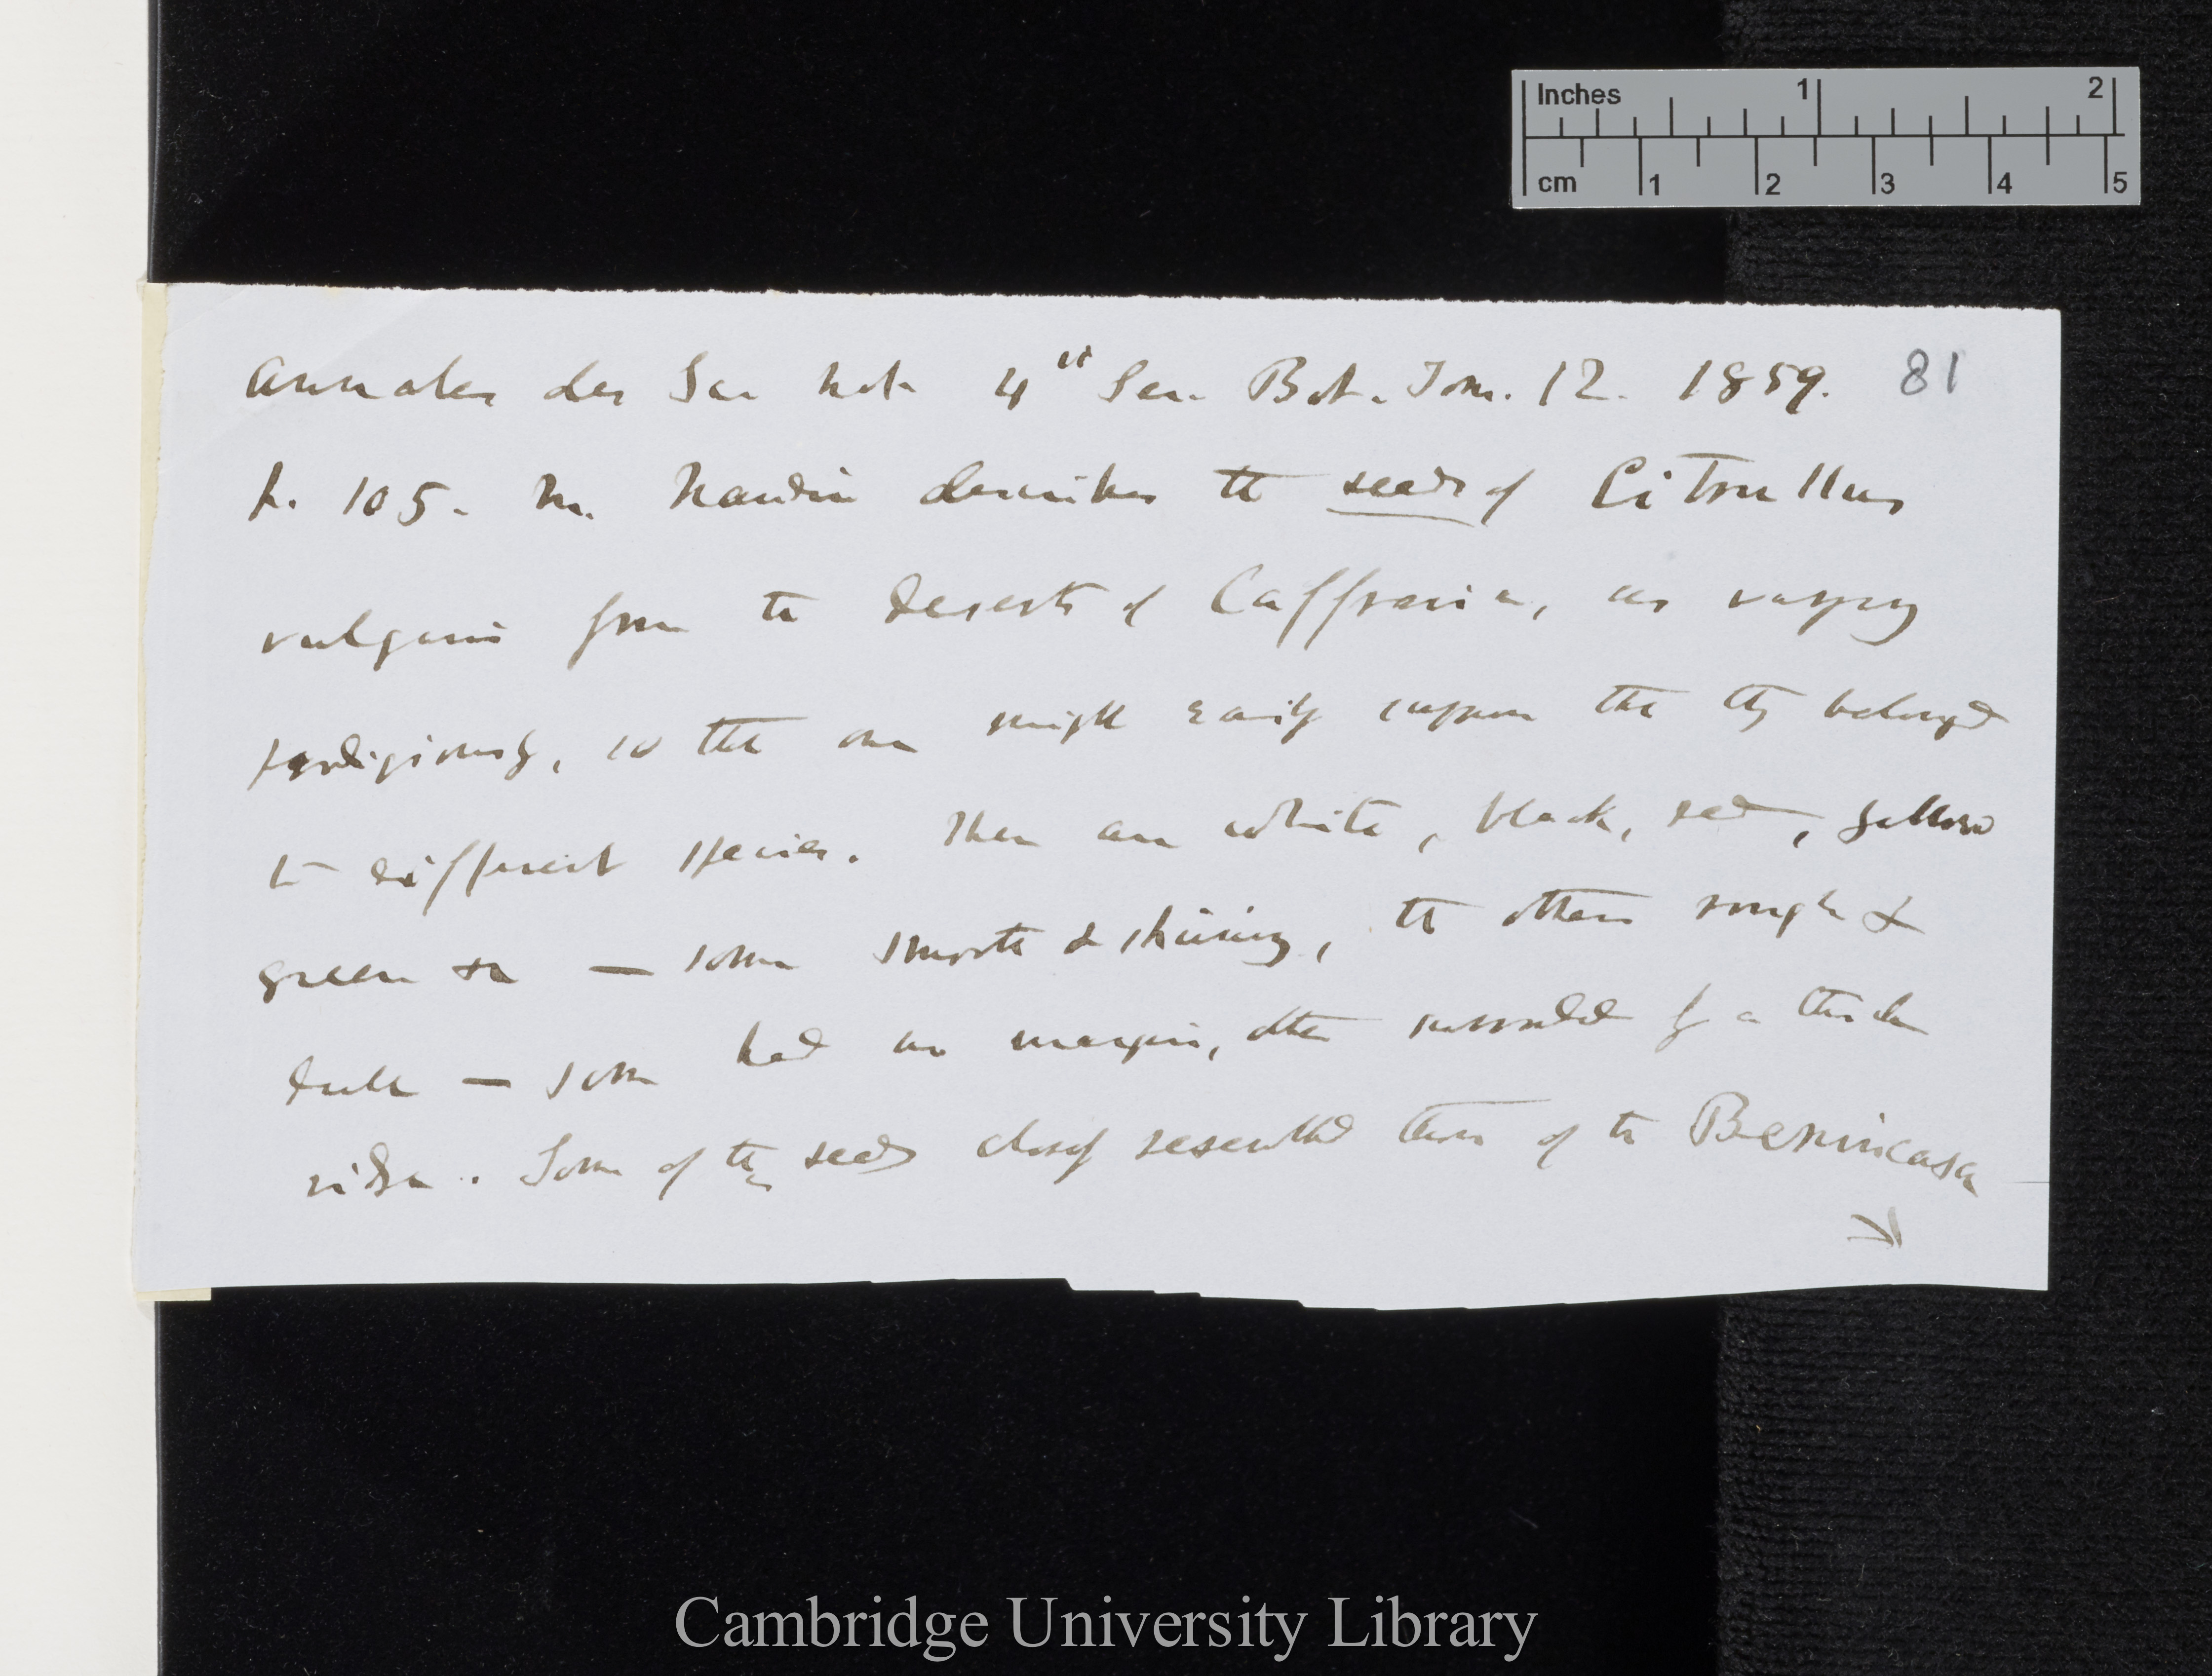 Inches 1 2
cm 1 2 3 4 5
81
Annales des Sc. nat. 4th Ser. Bot. Tom. 12. 1859.
p. 105. M. Naudin describes the seeds of Citrullus
vulgaris from the deserts of Caffraria, as varying
prodigiously, so that one might easily suppose that they belonged
to different species. There are white, black, red, yellow
green &c — some smooth & shining, the others rough &
dull — some had no margin, others surrounded by a thick
ridge. Some of the seeds closely resembled those of the Benincasa
Cambridge University Library